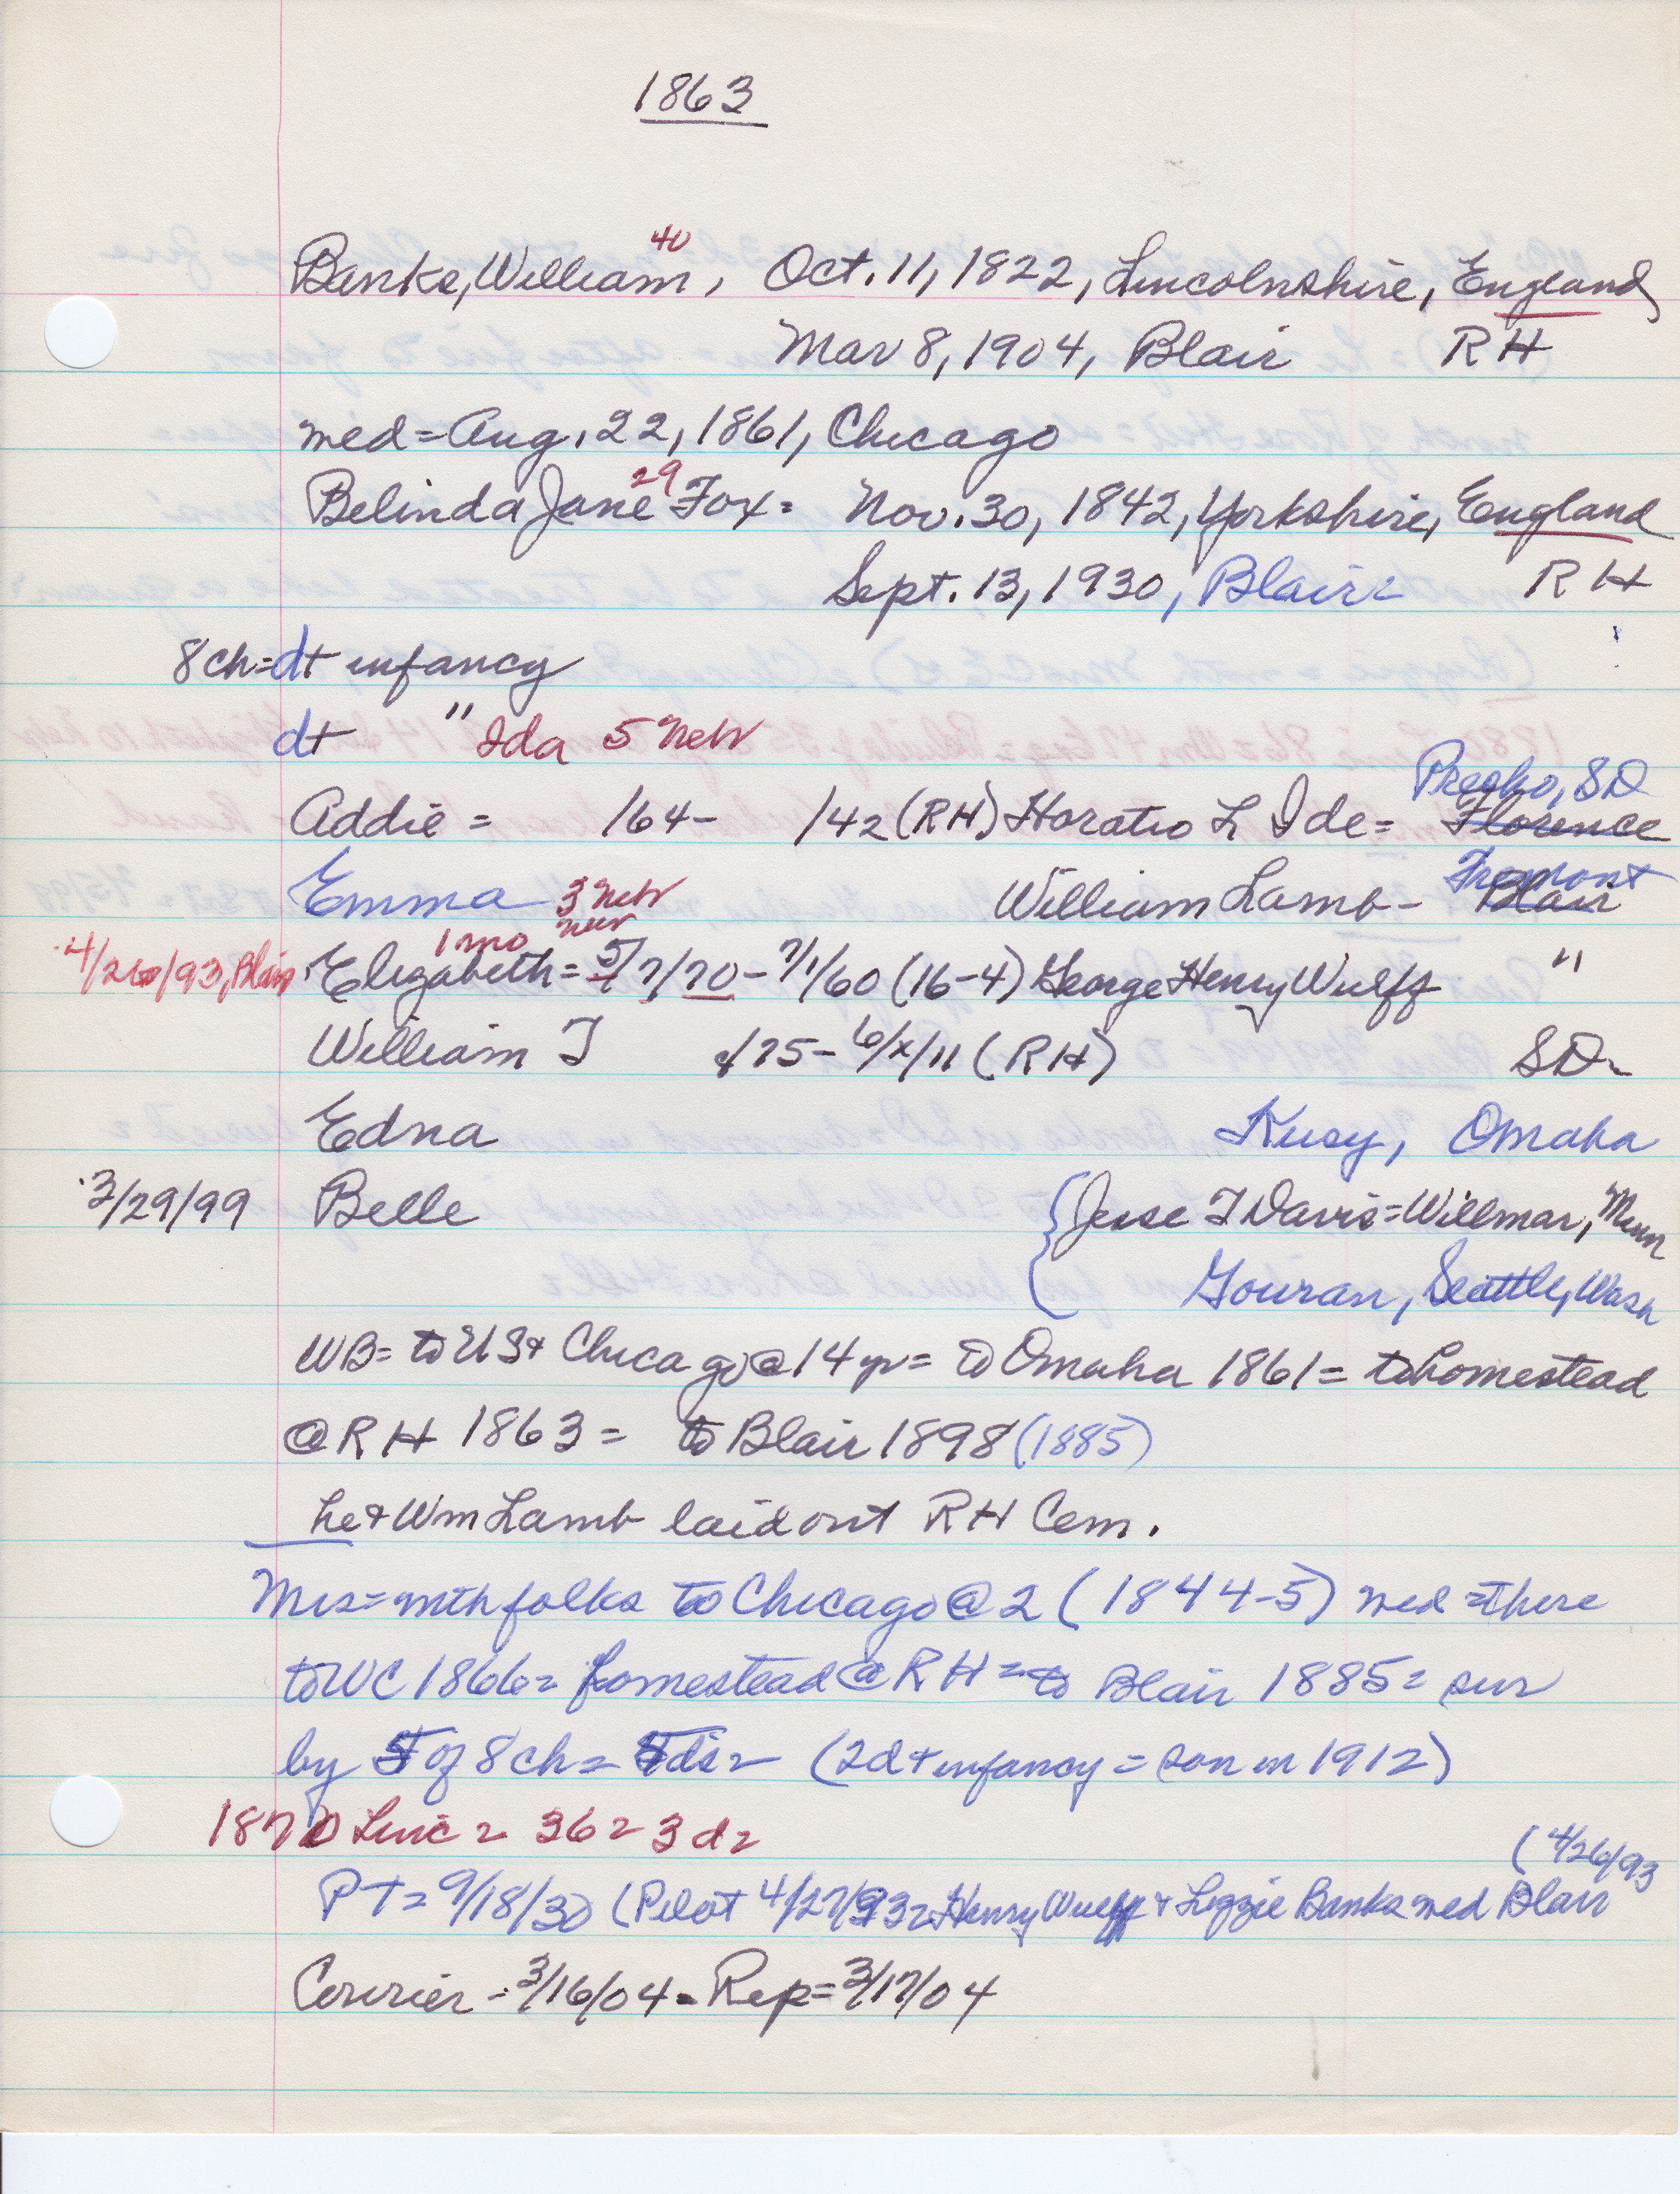 1863
40
Banks, William, Oct. 11, 1822, Lincolnshire, England
Mar 8, 1904, Blair RH
med = Aug. 22, 1861, Chicago
29
Belinda Jane Fox = Nov. 30, 1842, Yorkshire, England
Sept. 13, 1930, Blair = RH
8 ch = dt infancy
dt " Ida 5 Neb
Presho, SD
Addie = /64 - /42 (RH) Horatio L Ide = Florence
Fremont
Emma 3 Neb William Lamb - Blair
1 mo
4/26/93, Blair Elizabeth = 5/7/70 - 7/1/60 (16-4) George Henry Wulff "
William T /75 - 6/x/11 (RH) SD
Edna Kucy, Omaha
3/29/99 Belle Jesse T Davis = Willmar, Minn
Gouran, Seattle, Wash
WB = to US & Chicago @ 14 yr = to Omaha 1861 = to homestead
@ RH 1863 = to Blair 1898 (1885)
he & Wm Lamb laid out RH Cem.
Mrs = with folks to Chicago @ 2 (1844-5) med = there
to WC 1866 = homestead @ RH = to Blair 1885 = sur
by 5 of 8 ch = 5 ds = (2 d + infancy = son in 1912)
1870 Linc = 36 = 3 d =
(4/26/93
PT = 9/18/30 (Pilot 4/27/93 = Henry Wulff & Lizzie Banks med Blair
Courier - 3/16/04 - Rep = 3/17/04